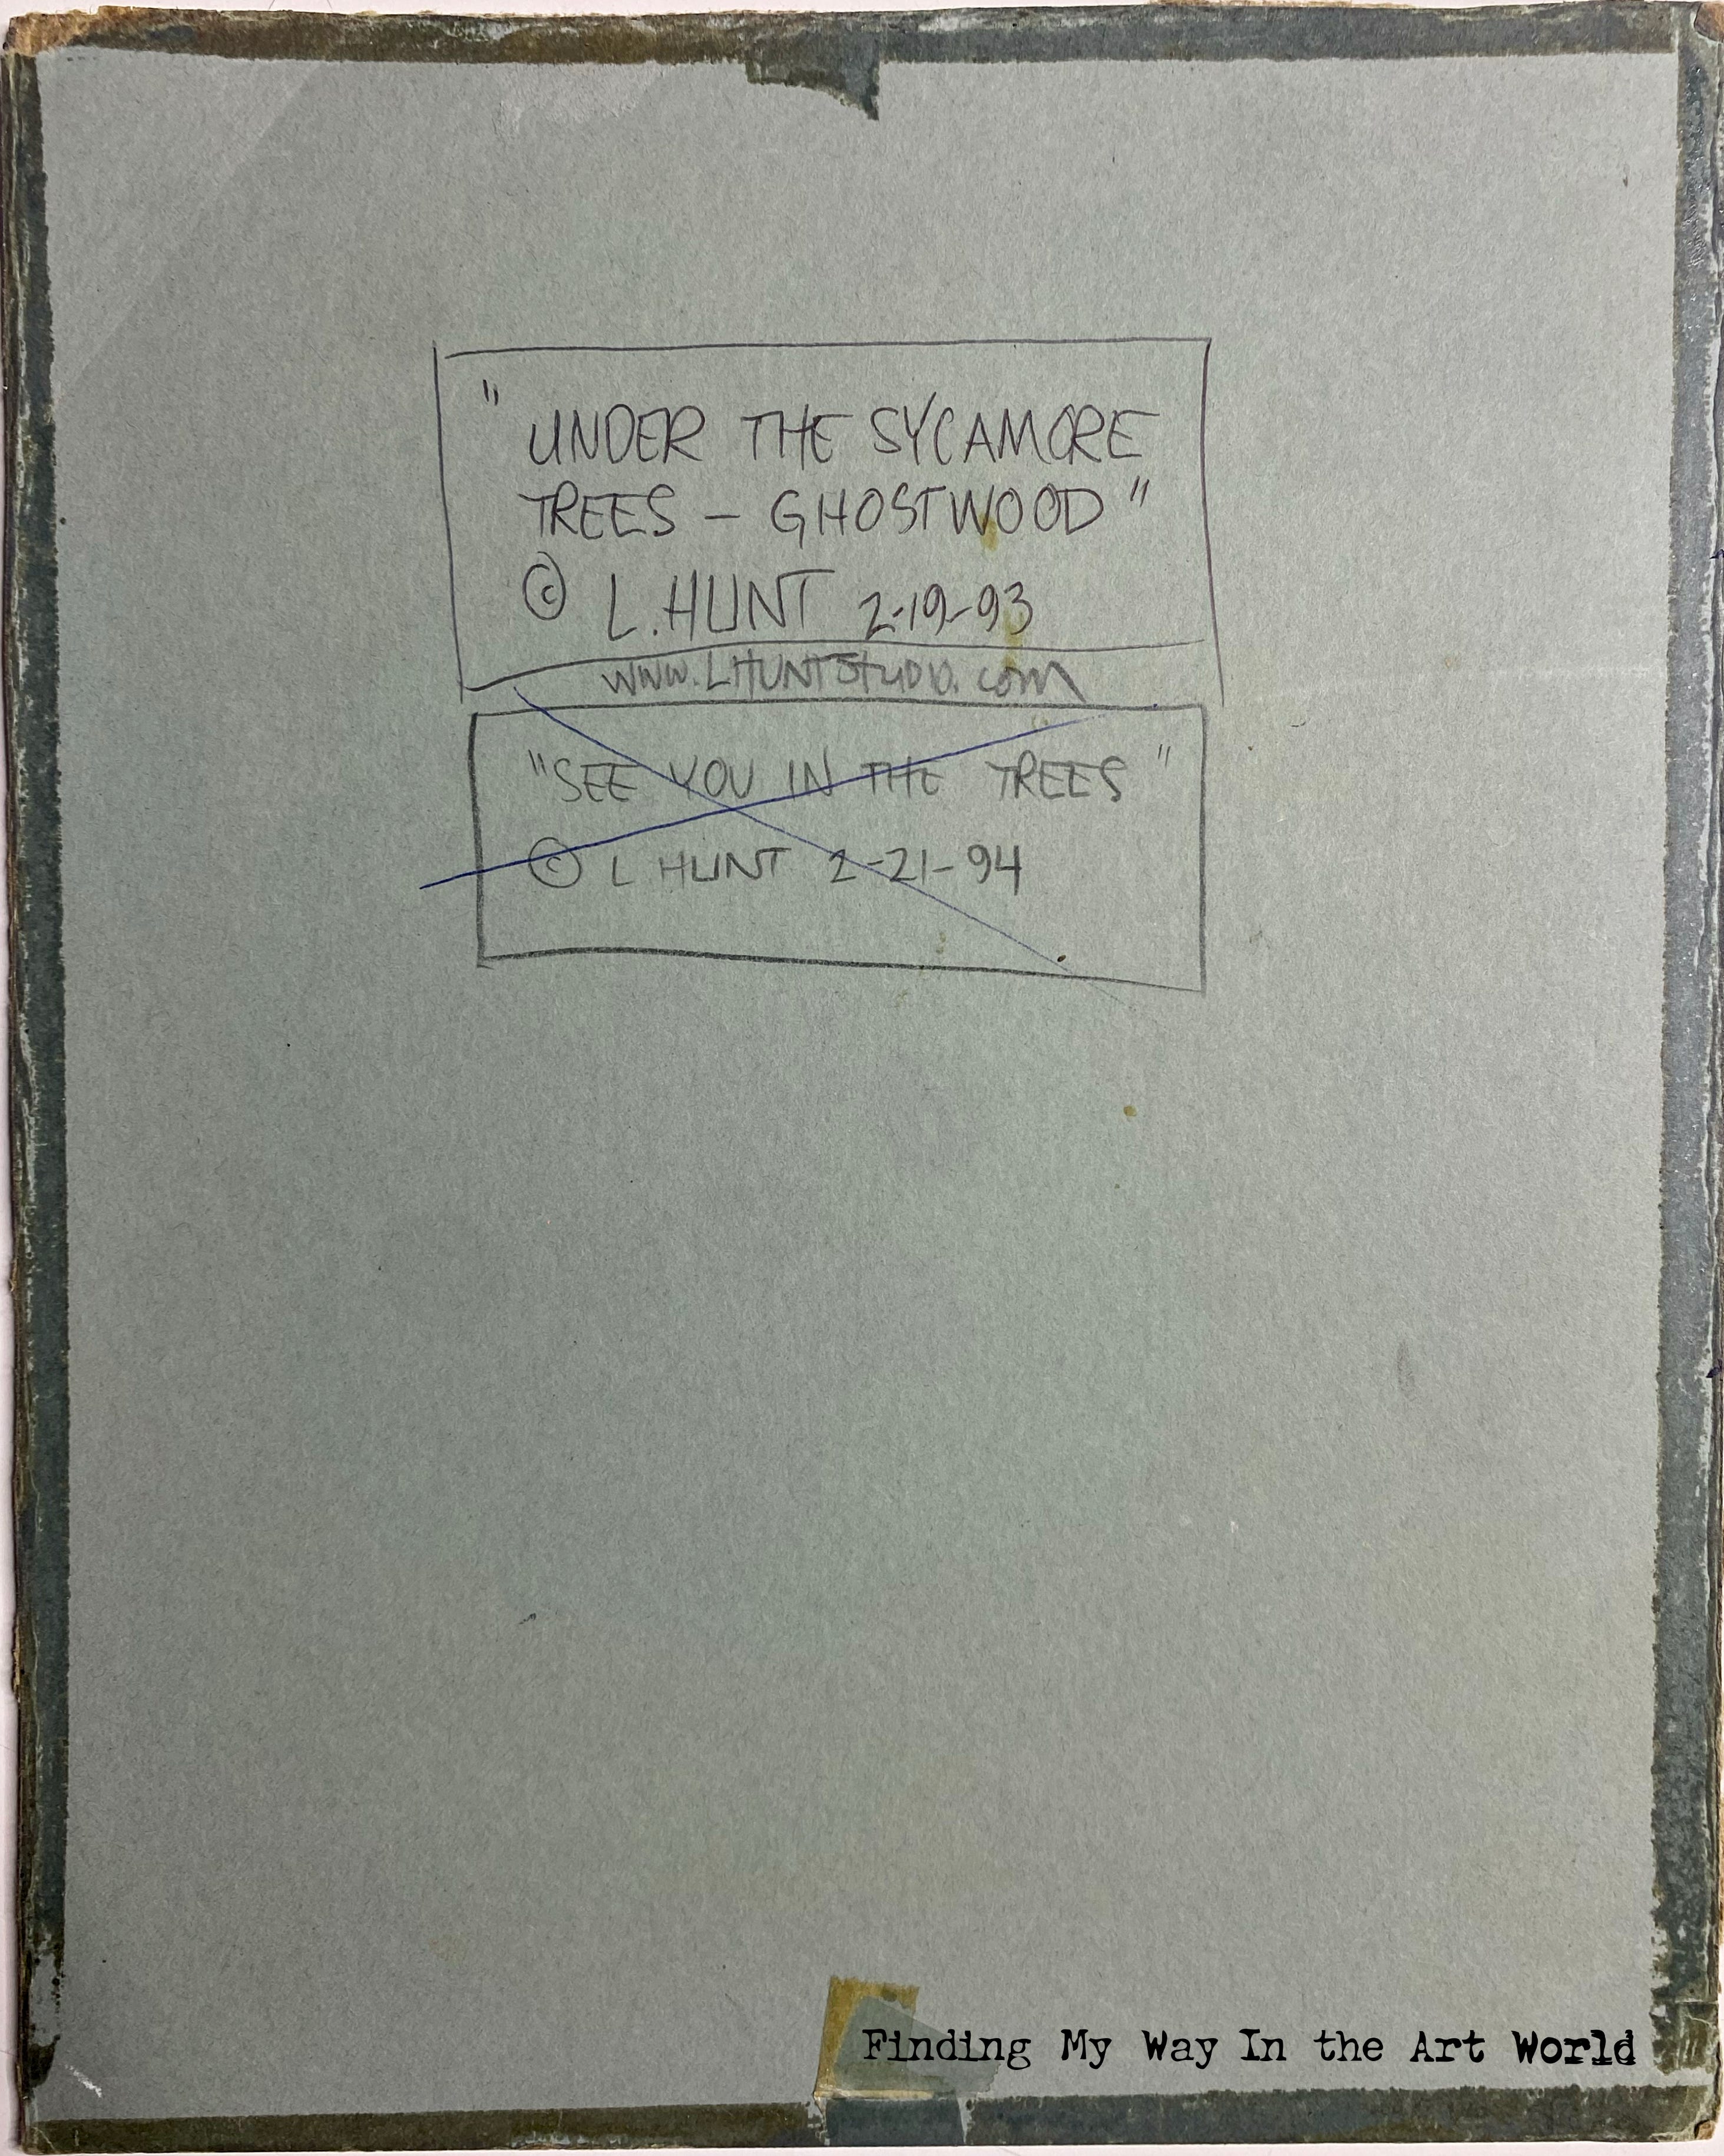 " UNDER THE SYCAMORE
TREES — GHOSTWOOD "
© L. HUNT 2-19-93
www.LHUNTStudio.com
"SEE YOU IN THE TREES "
© L HUNT 2-21-94
Finding My Way In the Art World